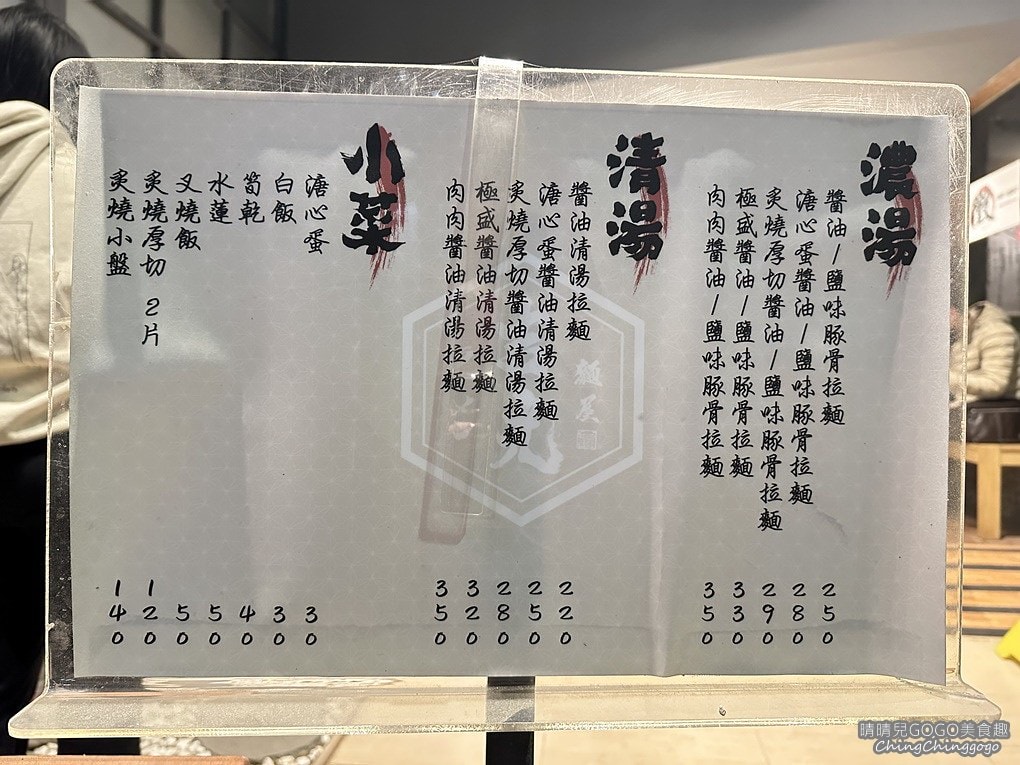 濃湯
醬油/鹽味豚骨拉麵 250
溏心蛋醬油/鹽味豚骨拉麵 280
炙燒厚切醬油/鹽味豚骨拉麵 290
極盛醬油/鹽味豚骨拉麵 330
肉肉醬油/鹽味豚骨拉麵 350
清湯
醬油清湯拉麵 220
溏心蛋醬油清湯拉麵 250
炙燒厚切醬油清湯拉麵 280
極盛醬油清湯拉麵 320
肉肉醬油清湯拉麵 350
小菜
溏心蛋 30
白飯 30
筍乾 40
水蓮 50
叉燒飯 50
炙燒厚切 2片 120
炙燒小盤 140
晴晴兒GOGO美食趣
ChingChinggogo